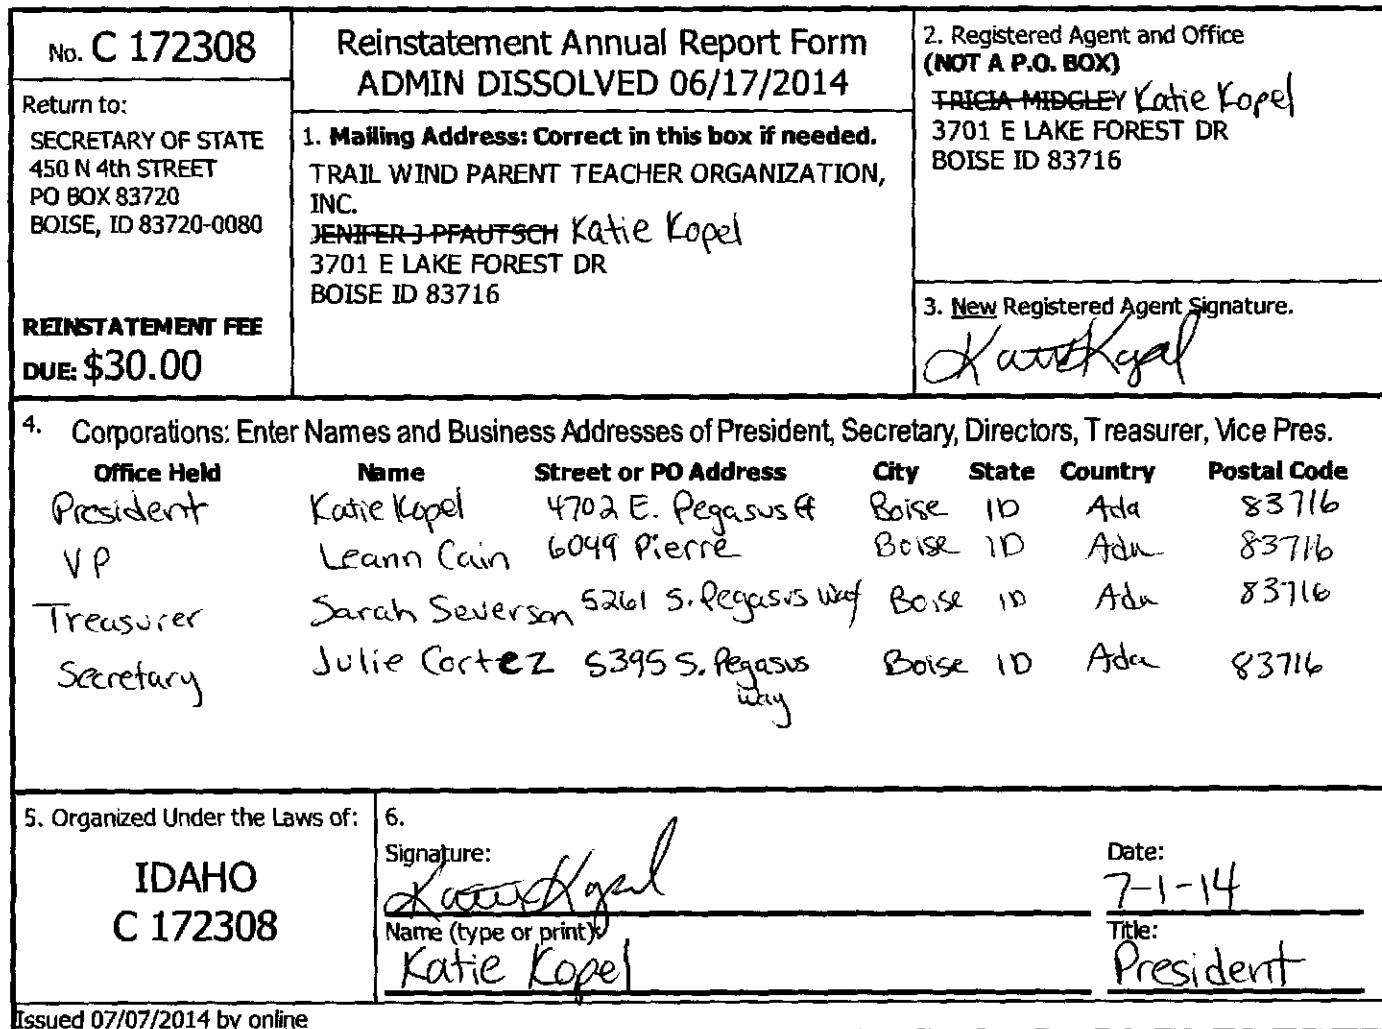 No. C 172308
Return to:
SECRETARY OF STATE
450 N 4th STREET
PO BOX 83720
BOISE, ID 83720-0080
REINSTATEMENT FEE
DUE: $30.00
Reinstatement Annual Report Form
ADMIN DISSOLVED 06/17/2014
1. Mailing Address: Correct in this box if needed.
TRAIL WIND PARENT TEACHER ORGANIZATION,
INC.
JENIFER J PFAUTSCH Katie Kopel
3701 E LAKE FOREST DR
BOISE ID 83716
2. Registered Agent and Office
(NOT A P.O. BOX)
TRICIA MIDGLEY Katie Kopel
3701 E LAKE FOREST DR
BOISE ID 83716
3. New Registered Agent Signature.
4. Corporations: Enter Names and Business Addresses of President, Secretary, Directors, Treasurer, Vice Pres.
Office Held Name Street or PO Address City State Country Postal Code
President Katie Kopel 4702 E. Pegasus Ct Boise ID Ada 83716
VP Leann Cain 6049 Pierre Boise ID Ada 83716
Treasurer Sarah Severson 5261 S. Pegasus Way Boise ID Ada 83716
Secretary Julie Cortez 5395 S. Pegasus Boise ID Ada 83716
Way
5. Organized Under the Laws of:
IDAHO
C 172308
6.
Signature:
Date:
7-1-14
Name (type or print):
Katie Kopel
Title:
President
Issued 07/07/2014 by online